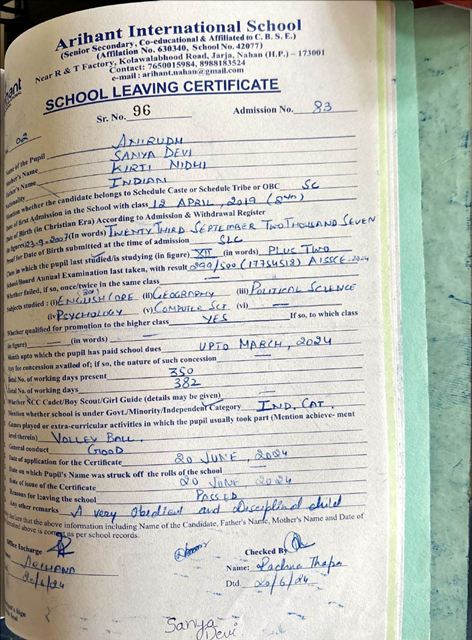 Arihant International School
(Senior Secondary, Co-educational & Affiliated to C. B. S. E.)
(Affilation No. 630340, School No. 42077)
Near R & T Factory, Kolawalabhood Road, Jarja, Nahan (H.P.) - 173001
Contact: 7650015984, 8988183524
e-mail : arihant.nahan@gmail.com
SCHOOL LEAVING CERTIFICATE
Sr. No. 96 Admission No. 83
Name of the Pupil ANIRUDH
Mother's Name SANYA DEVI
Father's Name KIRTI NIDHI
Nationality INDIAN
Mention whether the candidate belongs to Schedule Caste or Schedule Tribe or OBC SC
Date of first Admission in the School with class 12 APRIL, 2019
Date of Birth (in Christian Era) According to Admission & Withdrawal Register
(in figures) 23-9-2007 (In words) TWENTY THIRD SEPTEMBER TWO THOUSAND SEVEN
Proof for Date of Birth submitted at the time of admission SLC
Class in which the pupil last studied/is studying (in figure) XII (in words) PLUS TWO
School/Board Annual Examination last taken, with result 299/500 (17754518) AISSCE
Whether failed, if so, once/twice in the same class
Subjects studied : (i) ENGLISH CORE (ii) GEOGRAPHY (iii) POLITICAL SCIENCE
(iv) PSYCHOLOGY (v) COMPUTER SCI (vi) —
Whether qualified for promotion to the higher class YES If so, to which class
(in figure) — (in words) —
Month upto which the pupil has paid school dues UPTO MARCH, 2024
Any fee concession availed of; if so, the nature of such concession —
Total No. of working days present 350
Total No. of working days 382
Whether NCC Cadet/Boy Scout/Girl Guide (details may be given)
Mention whether school is under Govt./Minority/Independent Category IND. CAT.
Games played or extra-curricular activities in which the pupil usually took part (Mention achieve- ment
level therein) VOLLEY BALL.
General conduct GOOD
Date of application for the Certificate 20 JUNE, 2024
Date on which Pupil's Name was struck off the rolls of the school —
Date of issue of the Certificate 20 JUNE 2024
Reasons for leaving the school PASSED
Any other remarks A very obedient and disciplined child
declare that the above information including Name of the Candidate, Father's Name, Mother's Name and Date of
as per school records.
Office Incharge
ARCHANA
20/6/24
Checked By
Name: Rachna Thapa
Dtd. 20/6/24
Sanya
Devi